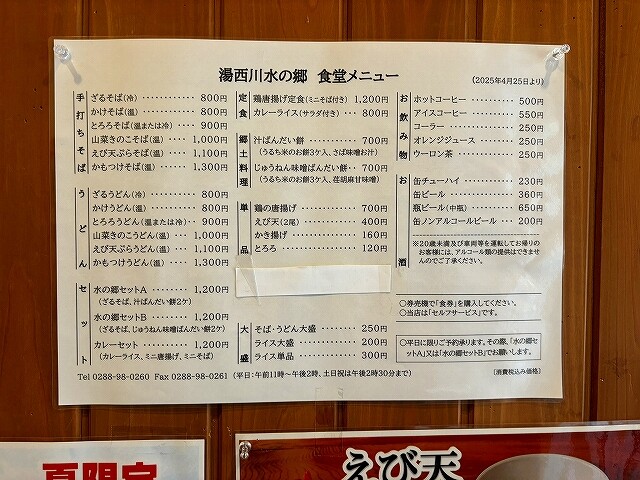 湯西川水の郷 食堂メニュー
(2025年4月25日より)
手打ちそば
ざるそば(冷) ・・・・・・・・ 800円
かけそば(温) ・・・・・・・・ 800円
とろろそば(温または冷) ・・・ 900円
山菜きのこそば(温) ・・・・ 1,000円
えび天ぷらそば(温) ・・・・ 1,100円
かもつけそば(温) ・・・・・ 1,300円
うどん
ざるうどん(冷) ・・・・・・・ 800円
かけうどん(温) ・・・・・・・ 800円
とろろうどん(温または冷)・ 900円
山菜きのこうどん(温) ・・・ 1,000円
えび天ぷらうどん(温) ・・・ 1,100円
かもつけうどん(温) ・・・・ 1,300円
セット
水の郷セットA ・・・・・・・ 1,200円
(ざるそば、汁ばんだい餅2ケ)
水の郷セットB ・・・・・・・ 1,200円
(ざるそば、じゅうねん味噌ばんだい餅2ケ)
カレーセット ・・・・・・・・ 1,200円
(カレーライス、ミニ唐揚げ、ミニそば)
定食
鶏唐揚げ定食(ミニそば付き) 1,200円
カレーライス(サラダ付き) ・・ 800円
郷土料理
汁ばんだい餅 ・・・・・・・・ 700円
(うるち米のお餅3ケ入、さば味噌お汁)
じゅうねん味噌ばんだい餅・・ 700円
(うるち米のお餅3ケ入、荏胡麻甘味噌)
単品
鶏の唐揚げ ・・・・・・・・・ 700円
えび天(2尾) ・・・・・・・・ 400円
かき揚げ ・・・・・・・・・・ 160円
とろろ ・・・・・・・・・・・ 120円
大盛
そば・うどん大盛 ・・・・・・ 250円
ライス大盛 ・・・・・・・・・ 200円
ライス単品 ・・・・・・・・・ 300円
お飲み物
ホットコーヒー ・・・・・・ 500円
アイスコーヒー ・・・・・・ 550円
コーラー ・・・・・・・・・ 250円
オレンジジュース ・・・・・ 250円
ウーロン茶 ・・・・・・・・ 250円
お酒
缶チューハイ ・・・・・・・ 230円
缶ビール ・・・・・・・・・ 360円
瓶ビール(中瓶) ・・・・・・ 650円
缶ノンアルコールビール ・・ 200円
※20歳未満及び車両等を運転してお帰りの
お客様には、アルコール類の提供はできませ
んのでご了承ください。
○券売機で「食券」を購入してください。
○当店は「セルフサービス」です。
○平日に限りご予約承ります。その際、「水の郷セ
ットA」又は「水の郷セットB」でお願いします。
Tel 0288-98-0260 Fax 0288-98-0261 (平日:午前11時～午後2時、土日祝は午後2時30分まで)
〔消費税込み価格〕
夏限定
えび天